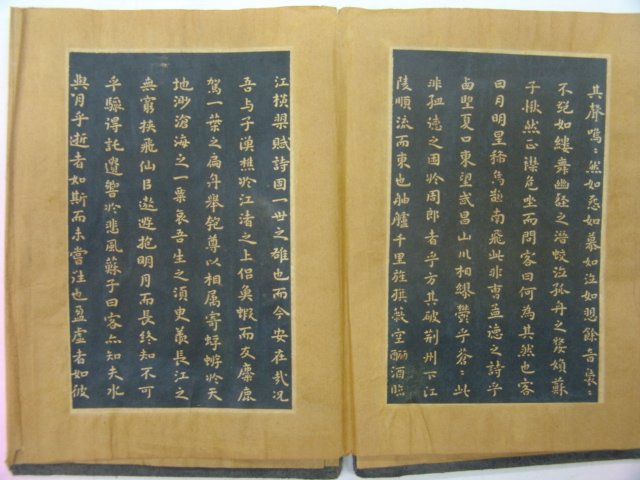 其聲嗚〻然如怨如慕如泣如愬餘音裊〻
不絕如縷舞幽壑之潛蛟泣孤舟之嫠婦蘇
子愀然正襟危坐而問客曰何為其然也客
曰月明星稀烏鵲南飛此非曹孟德之詩乎
西望夏口東望武昌山川相繆鬱乎蒼〻此
非孟德之困於周郎者乎方其破荆州下江
陵順流而東也舳艫千里旌旗蔽空釃酒臨
江橫槊賦詩固一世之雄也而今安在哉況
吾與子漁樵於江渚之上侶魚蝦而友麋鹿
駕一葉之扁舟舉匏尊以相属寄蜉蝣於天
地渺滄海之一粟哀吾生之須臾羨長江之
無窮挾飛仙以遨遊抱明月而長終知不可
乎驟得託遺響於悲風蘇子曰客亦知夫水
與月乎逝者如斯而未嘗往也盈虛者如彼